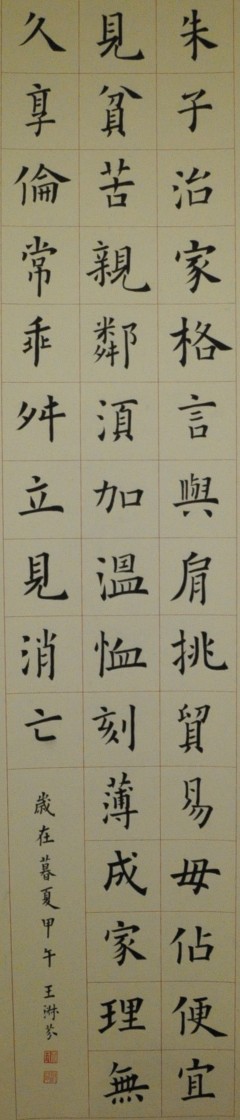 朱子治家格言與肩挑貿易毋佔便宜
見貧苦親鄰須加溫恤刻薄成家理無
久享倫常乖舛立見消亡
歲在暮夏甲午 王淋芬